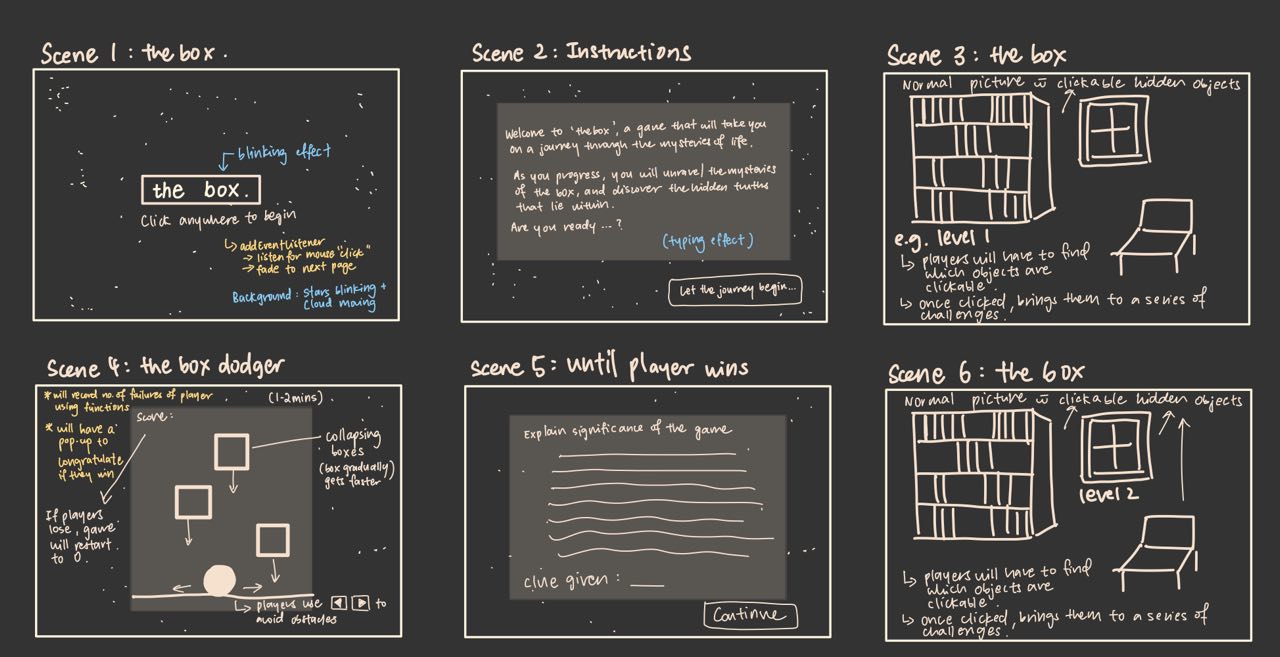 Scene 1 : the box .
blinking effect
the box.
Click anywhere to begin
↳ addEventListener
→ listen for mouse "click"
→ fade to next page
Background : Stars blinking +
Cloud moving
Scene 2 : Instructions
Welcome to 'the box', a game that will take you
on a journey through the mysteries of life.
As you progress, you will unravel the mysteries
of the box, and discover the hidden truths
that lie within.
Are you ready ... ?
(typing effect)
Let the journey begin...
Scene 3 : the box
Normal picture w̄ clickable hidden objects
e.g. level 1
↳ players will have to find
which objects are
clickable.
↳ once clicked, brings them to a series of
challenges.
Scene 4 : the box dodger
* will record no. of failures of player
using functions
(1-2mins)
score :
* will have a
pop-up to
congratulate
if they win
collapsing
boxes
(box gradually)
gets faster
If players
lose, game
will restart
to 0.
↳ players use ◀ ▶ to
avoid obstacles
Scene 5 : until player wins
Explain significance of the game
clue given : ___
Continue
Scene 6 : the box
Normal picture w̄ clickable hidden objects
level 2
↳ players will have to find
which objects are
clickable.
↳ once clicked, brings them to a series of
challenges.